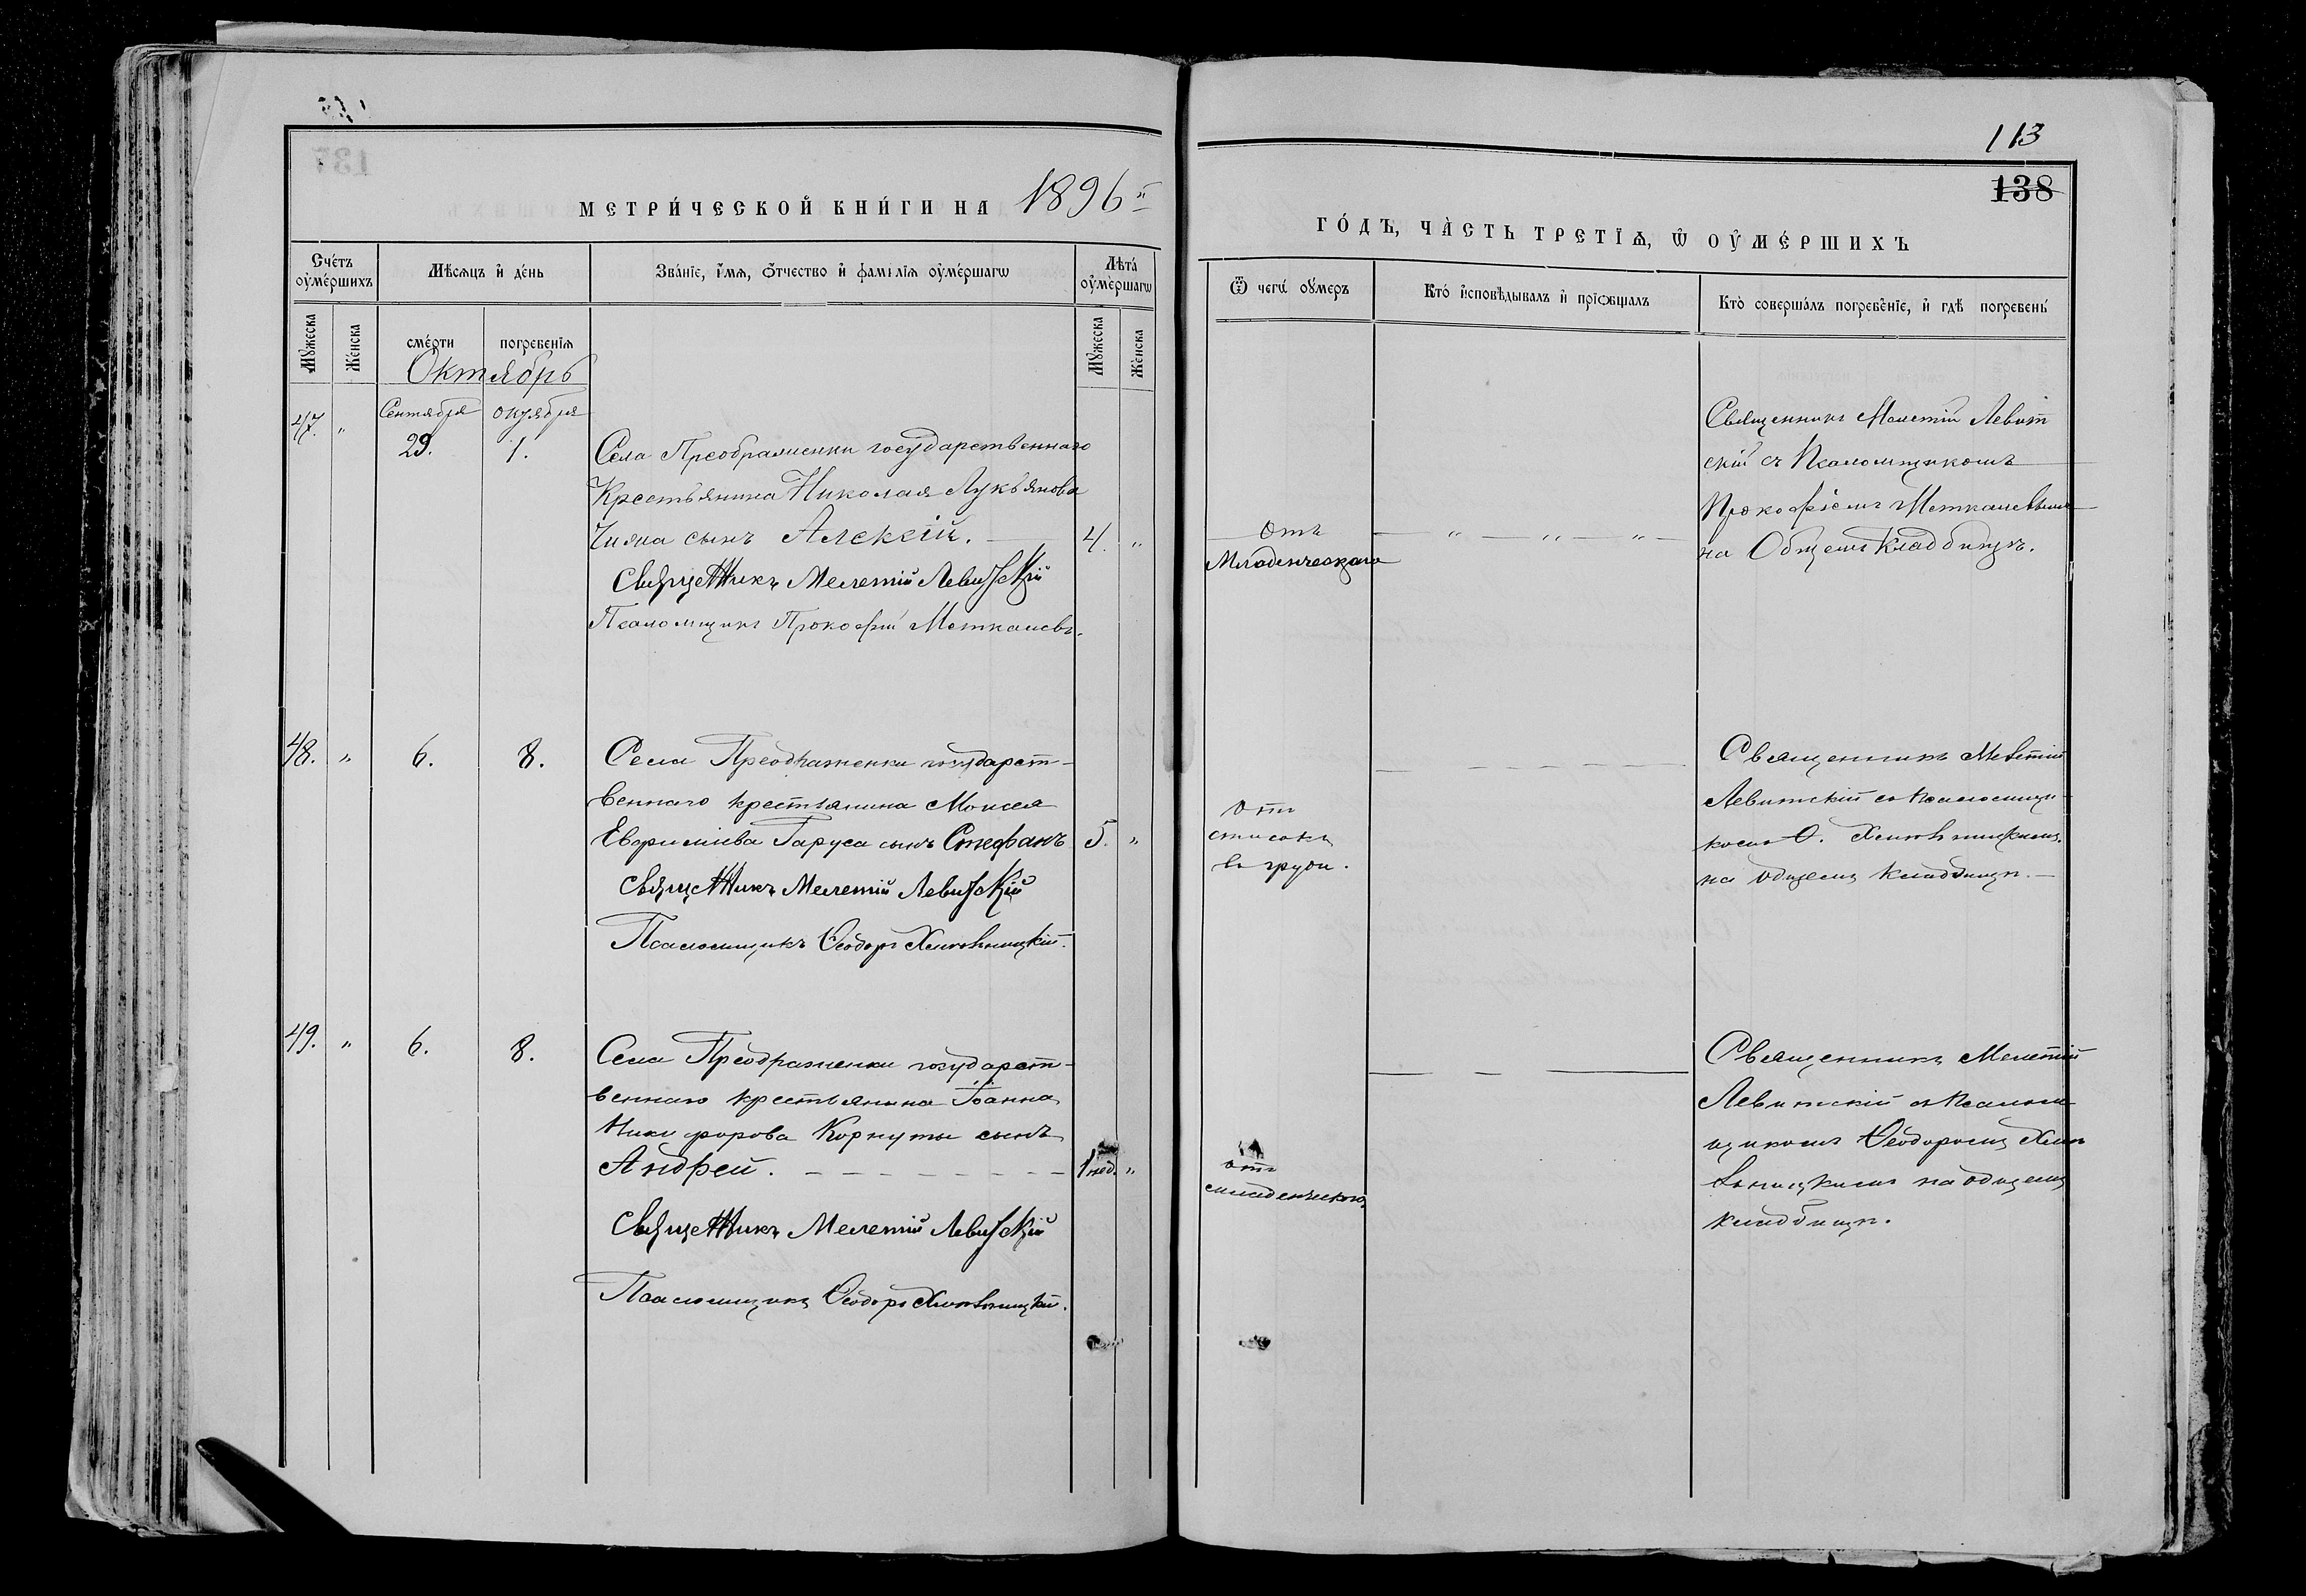 113
138
МЕТРИ́ЧЕСКОЙ КНИ́ГИ НА 1896й
ГО́ДЪ, ЧА́СТЬ ТРЕТІѦ, Ѡ ОУ҆МЕ́РШИХЪ
Сче́тъ оу҆ме́ршихъ
Мѣ́сяцъ и҆ де́нь
Зва́ніе, и҆́мѧ, ѻ҆́тчество и҆ фамилія оу҆ме́ршагѡ
Лѣта́ оу҆ме́ршагѡ
Ѿ чегѡ̀ оу҆́меръ
Кто̀ и҆сповѣ́дывалъ и҆ прїѡбща́лъ
Кто̀ соверша́лъ погребе́ніе, и҆ гдѣ̀ погребены̀
Мꙋ́жеска
Же́нска
сме́рти
погребе́нія
Мꙋ́жеска
Же́нска
Октябрь
Сентября октября
47. " 29. 1.
Села Преображенки государственнаго
Крестьянина Николая Лукьянова
сынъ Алексій. 4. "
Священникъ Мелетій Левитскій
Псаломщикъ Прокофій Меткалевъ.
Отъ
Младенческаго
Священникъ Мелетій Левит
скій съ Псаломщикомъ
Прокофіемъ Меткалевымъ
на Общемъ кладбищѣ.
48. " 6. 8.
Села Преображенки государст-
веннаго крестьянина Моисея
Евфиміева Гаруса сынъ Стефанъ 5. "
Священникъ Мелетій Левитскій
Псаломщикъ Ѳеодоръ
отъ
въ груди.
Священникъ Мелетій
Левитскій съ Псаломщи-
комъ Ѳ.
на общемъ кладбищѣ.
49. " 6. 8.
Села Преображенки государст-
веннаго крестьянина Іоанна
Никифорова Корнуты сынъ
Андрей. 1 нед. "
Священникъ Мелетій Левитскій
Псаломщикъ Ѳеодоръ
отъ
младенческаго.
Священникъ Мелетій
Левитскій съ Псалом
щикомъ Ѳеодоромъ
на общемъ
кладбищѣ.